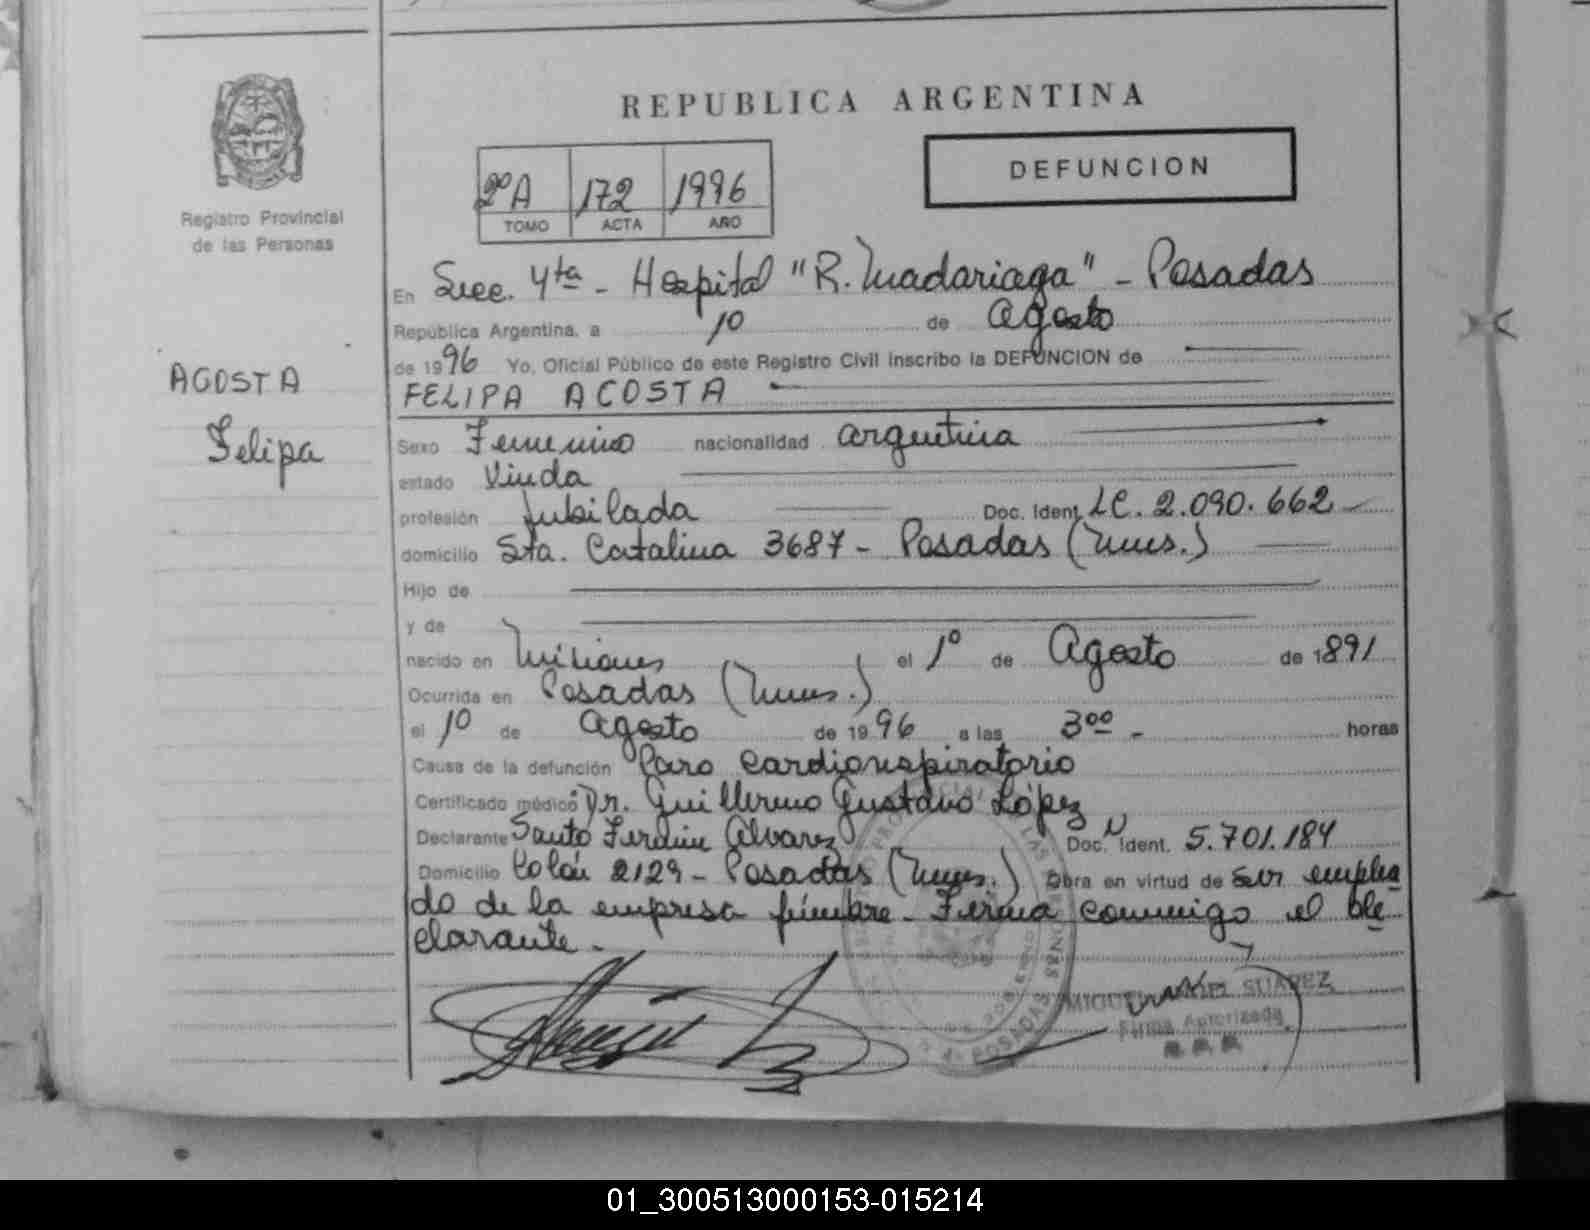 REPUBLICA ARGENTINA
DEFUNCION
2º A 172 1996
TOMO ACTA AÑO
Registro Provincial
de las Personas
ACOSTA
Felipa
En Secc. 4ta - Hospital "R. Madariaga" - Posadas
República Argentina, a 10 de Agosto
de 1996 Yo, Oficial Público de este Registro Civil inscribo la DEFUNCION de
FELIPA ACOSTA
Sexo Femenino nacionalidad argentina
estado Viuda
profesión Jubilada Doc. Ident. LC. 2.090.662
domicilio Sta. Catalina 3687 - Posadas (Mnes.)
Hijo de
y de
nacido en Misiones el 1º de Agosto de 1891
Ocurrida en Posadas (Mnes.)
el 10 de Agosto de 1996 a las 3⁰⁰ - horas
Causa de la defunción Paro cardiorespiratorio
Certificado médico Dr. Guillermo Gustavo López
Declarante Santo Alvarez Doc. Ident. 5.701.184
Domicilio Colón 2129 - Posadas (Mnes.) Obra en virtud de ser emplea
do de la empresa fúnebre - Firma conmigo el de
clarante -
MIGUEL SUAREZ
Firma Autorizada
01_300513000153-015214